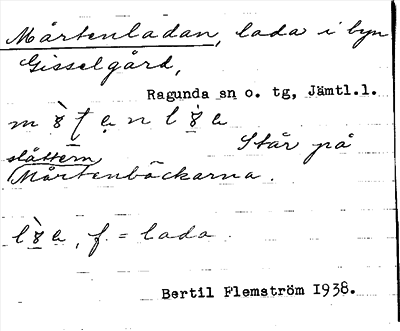 Mårtenladan, lada i byn
Gisselgård,
Ragunda sn o. tg, Jämtl.l.
Står på
slåttern
Mårtenbäckarna.
f. = lada
Bertil Flemström 1938.